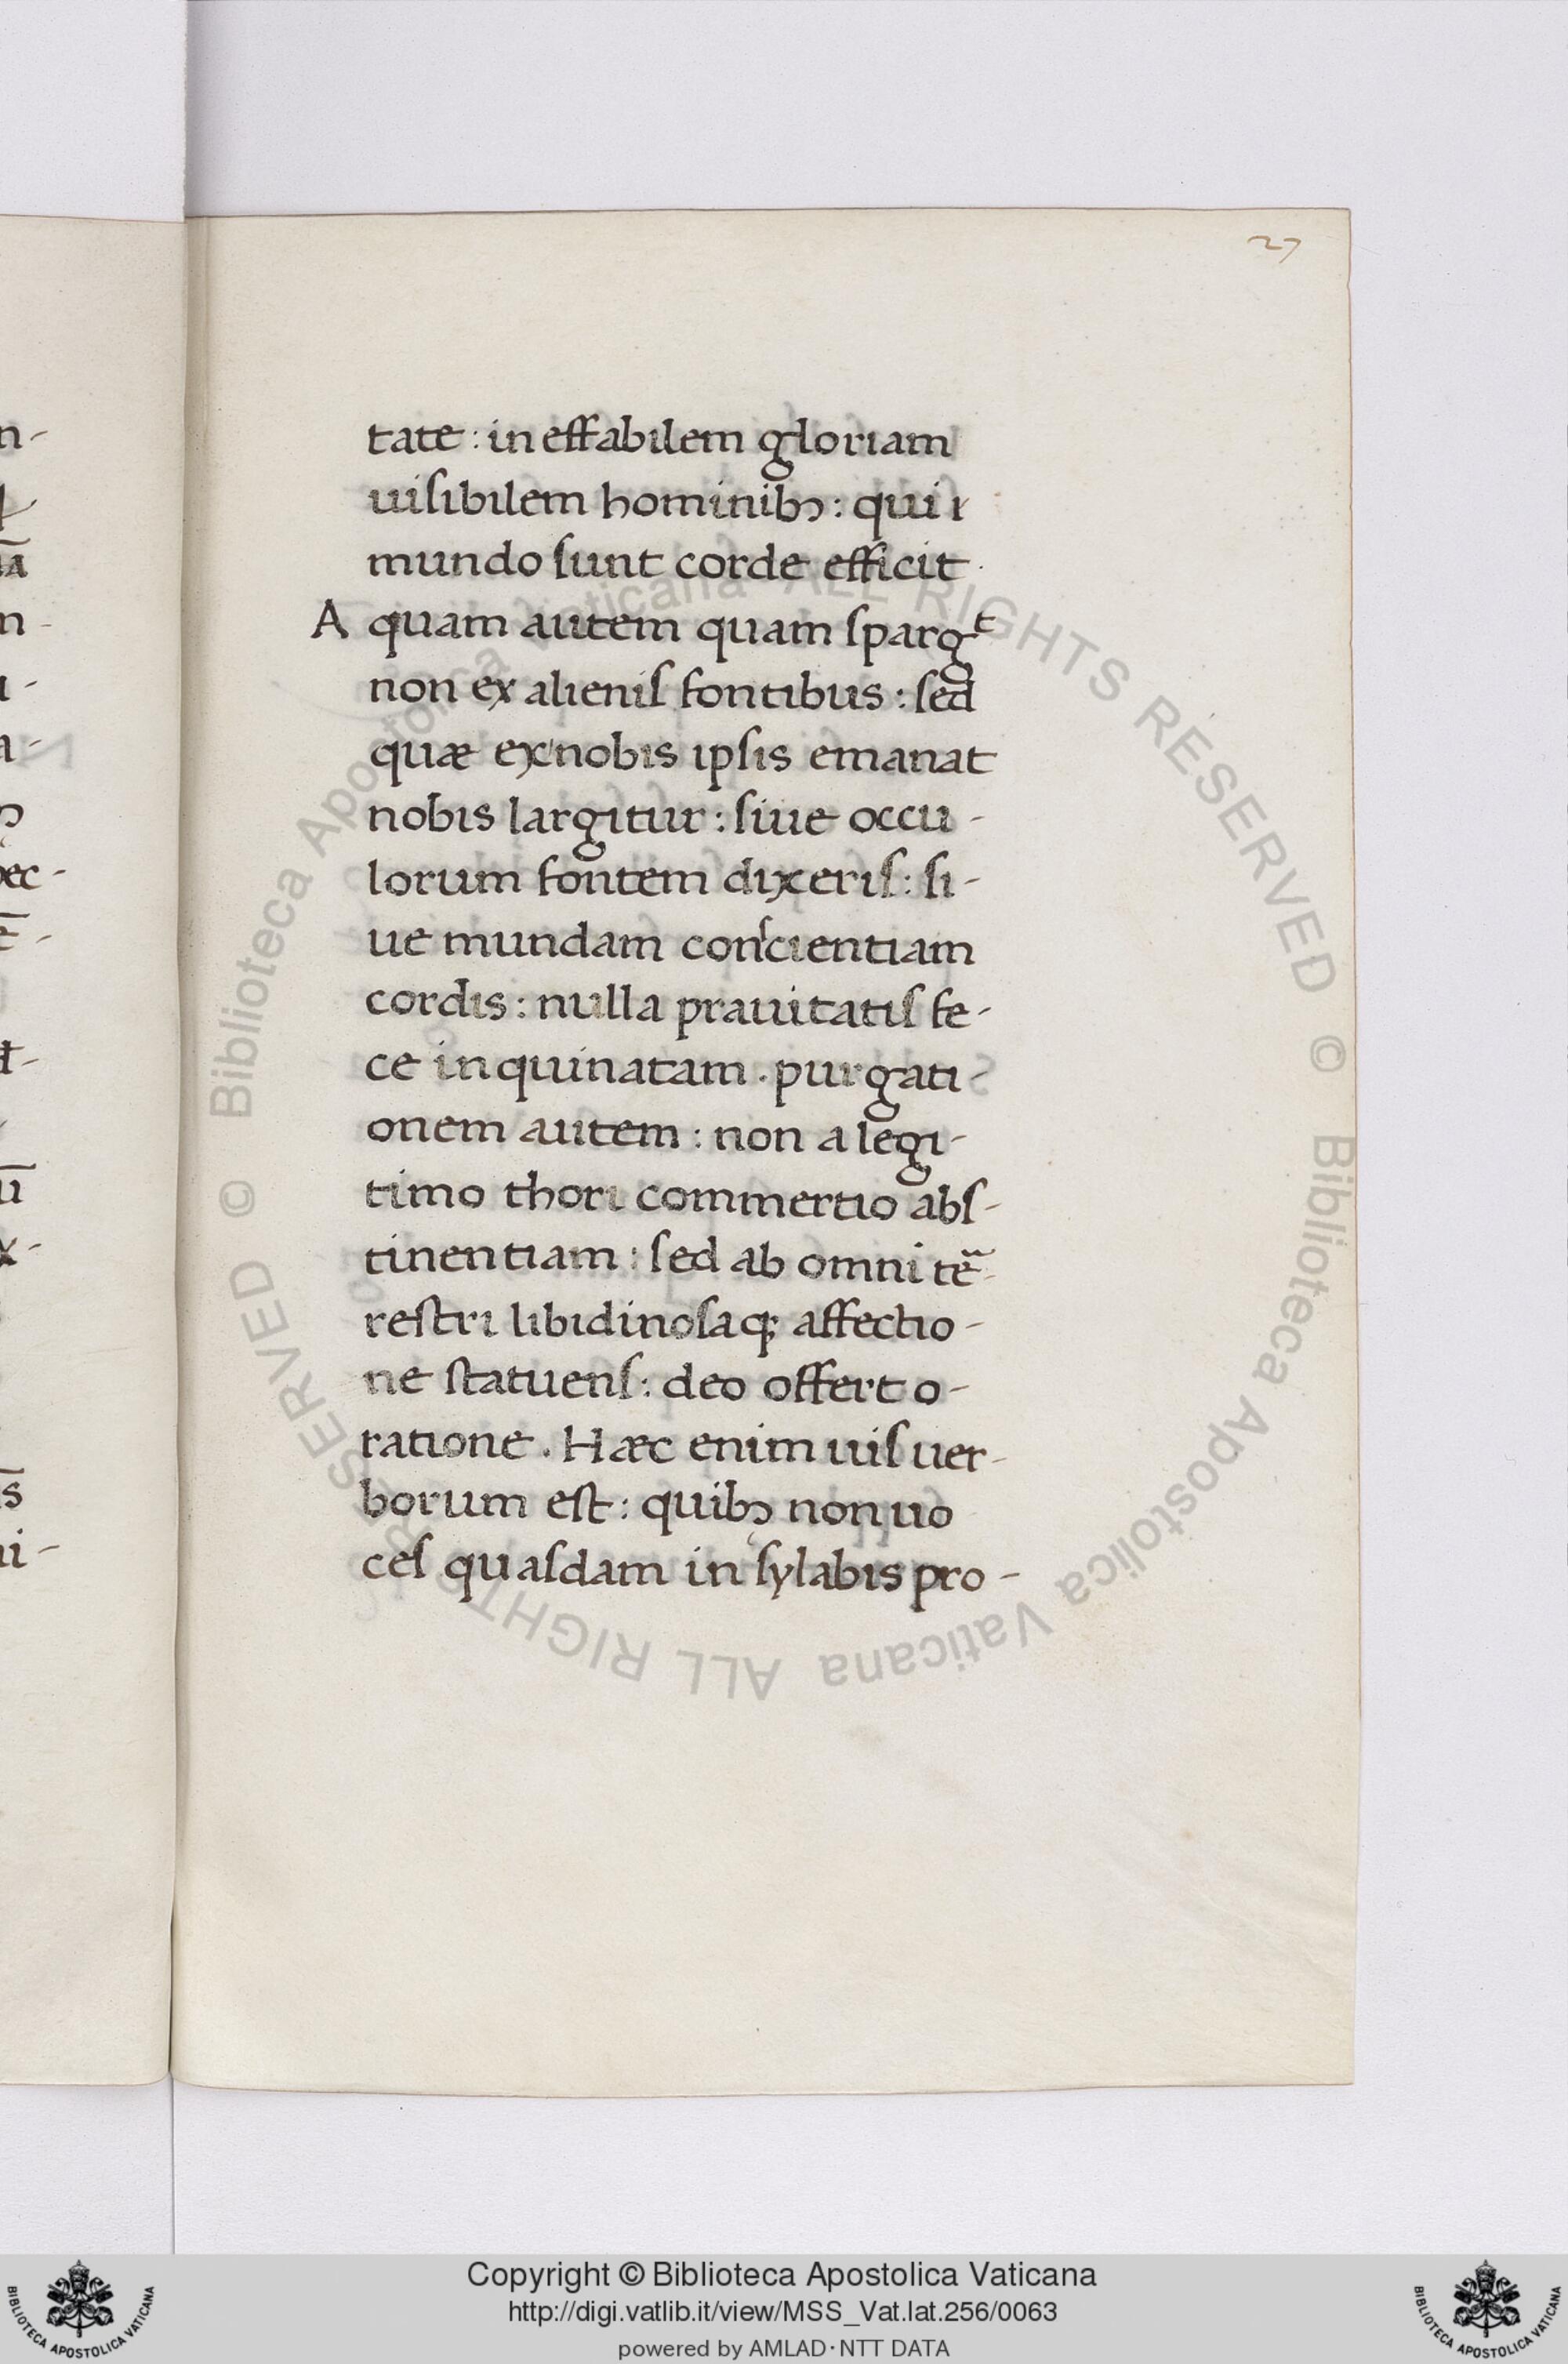 27
tate : in effabilem gloriam
uiſibilem hominibꝫ : qui ı
mundo ſunt corde efficit .
A quam autem quam ſpargͭ
non ex alieniſ fontibus : ſed
quæ ex nobis ipſis emanat
nobis largitur : ſiue occu -
lorum fontem dixeriſ : ſi -
ue mundam conſcientiam
cordis : nulla prauitatiſ fe -
ce inquinatam . purgati -
onem autem : non a legi -
timo thori commertio abſ -
tinentiam : ſed ab omni teᷓ -
reſtri libidinoſaqꝫ affectio -
ne ſtatuenſ : deo offert o -
ratione . Hæc enim uiſ uer -
borum eſt : quibꝫ non uo
ceſ quaſdam in ſylabis pro -
© Biblioteca Apostolica Vaticana ALL RIGHTS RESERVED © Biblioteca Apostolica Vaticana ALL RIGHTS RESERVED
Copyright © Biblioteca Apostolica Vaticana
http://digi.vatlib.it/view/MSS_Vat.lat.256/0063
powered by AMLAD·NTT DATA
BIBLIOTECA APOSTOLICA VATICANA
BIBLIOTECA APOSTOLICA VATICANA